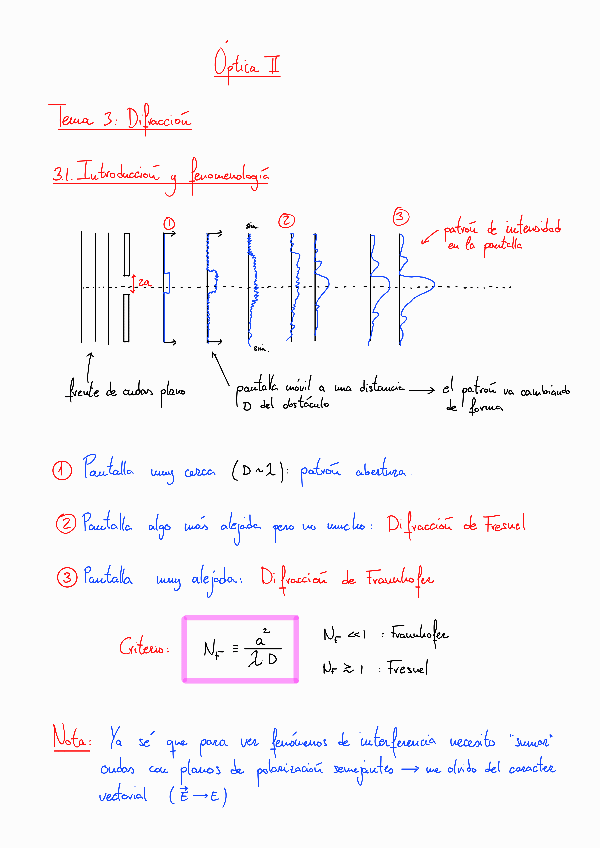 Óptica II
Tema 3: Difracción
3.1. Introducción y fenomenología
① ② ③
sin.
patrón de intensidad
en la pantalla
2a
sin.
frente de ondas plano
pantalla móvil a una distancia → el patrón va cambiando
D del obstáculo de forma
① Pantalla muy cerca (D ~ λ): patrón abertura
② Pantalla algo más alejada pero no mucho: Difracción de Fresnel
③ Pantalla muy alejada: Difracción de Fraunhofer
Criterio: N_F ≡ a²/λD
N_F ≪ 1 : Fraunhofer
N_F ≳ 1 : Fresnel
Nota: Ya sé que para ver fenómenos de interferencia necesito "sumar"
ondas con planos de polarización semejantes → me olvido del caracter
vectorial (E⃗ → E)